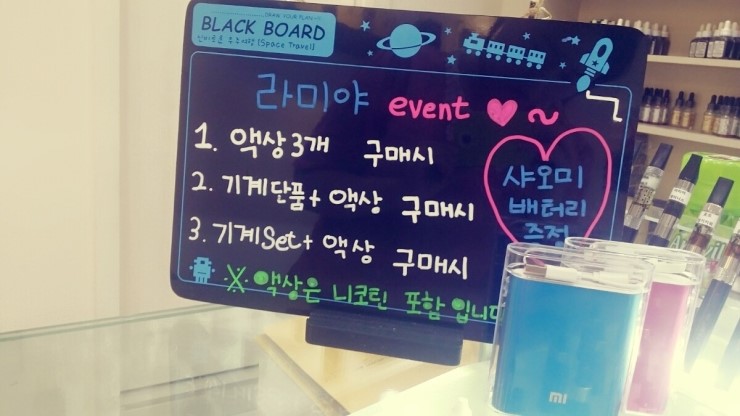 DRAW YOUR PLAN!!
BLACK BOARD
신비로운 우주여행 (Space Travel)
라미야 event ♥ ~
1. 액상3개 구매시
2. 기계단품+ 액상 구매시
3. 기계Set+ 액상 구매시
샤오미
배터리
증정
※ 액상은 니코틴 포함 입니다
mi